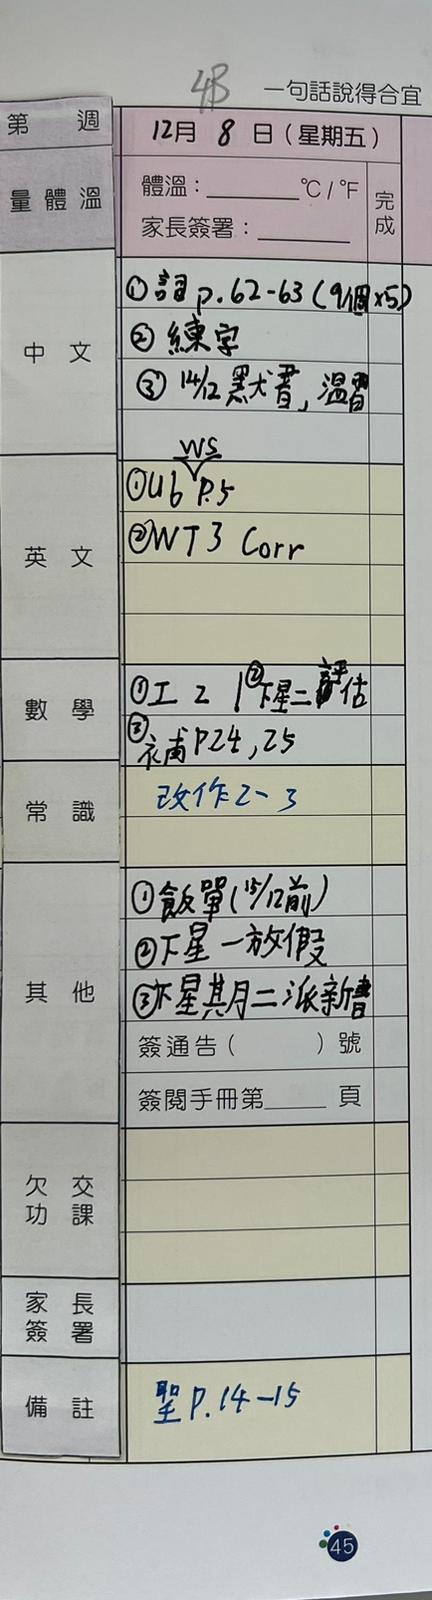 4B
一句話說得合宜
第 週
12月 8 日（星期五）
量體溫
體溫：________°C / °F
家長簽署：________
完成
中文
① 詞 p.62-63 (9個x5)
② 練字
③ 14/12 默書, 溫習
英文
WS
① U6 P.5
② WT3 Corr
數學
① 工 2 1 ② 下星二評估
③ 補 P24, 25
常識
改作2-3
其他
① 飯單(15/12前)
② 下星一放假
③ 下星其月二派新書
簽通告（ ）號
簽閱手冊第____ 頁
欠交功課
家長簽署
備註
聖 P.14-15
45